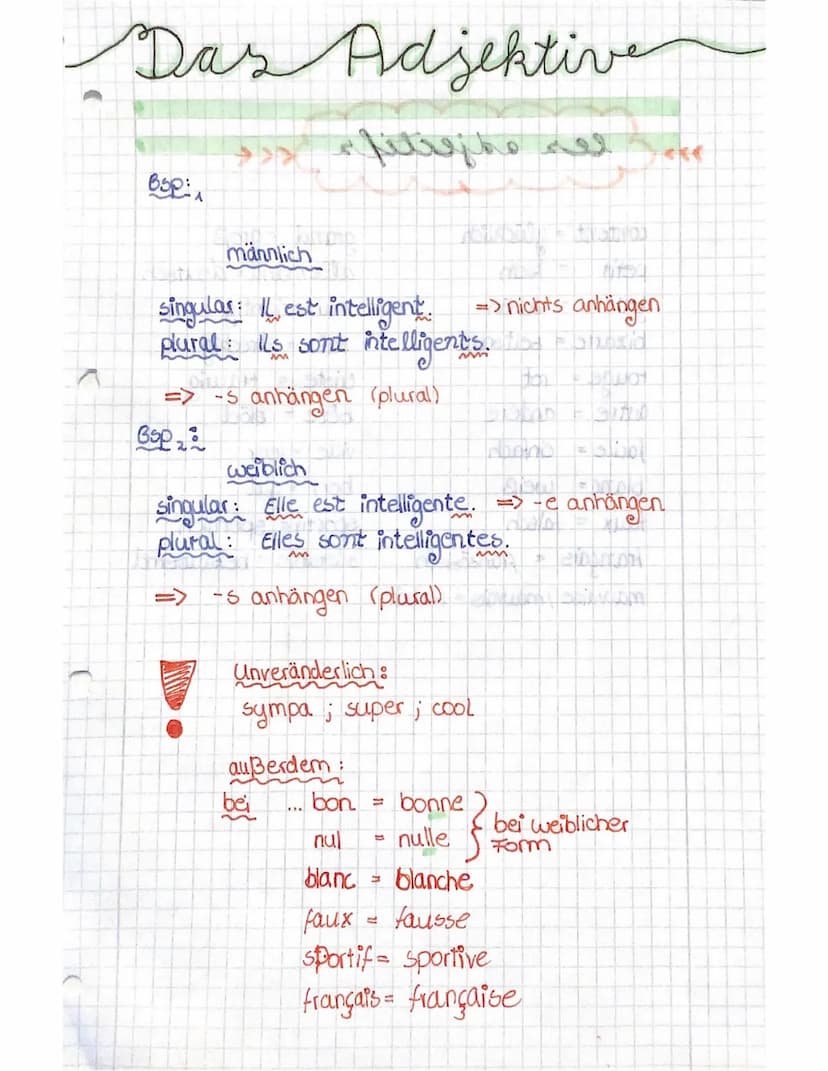 Das Adjektive
les adjectifs
Bsp:1
männlich
singular: Il est intelligent. => nichts anhängen
plural: Ils sont intelligents.
=> -s anhängen (plural)
Bsp 2:
weiblich
singular: Elle est intelligente. => -e anhängen
plural: Elles sont intelligentes.
=> -s anhängen (plural)
! Unveränderlich:
sympa ; super ; cool
außerdem:
bei ... bon = bonne
nul = nulle } bei weiblicher Form
blanc = blanche
faux = fausse
sportif = sportive
français = française